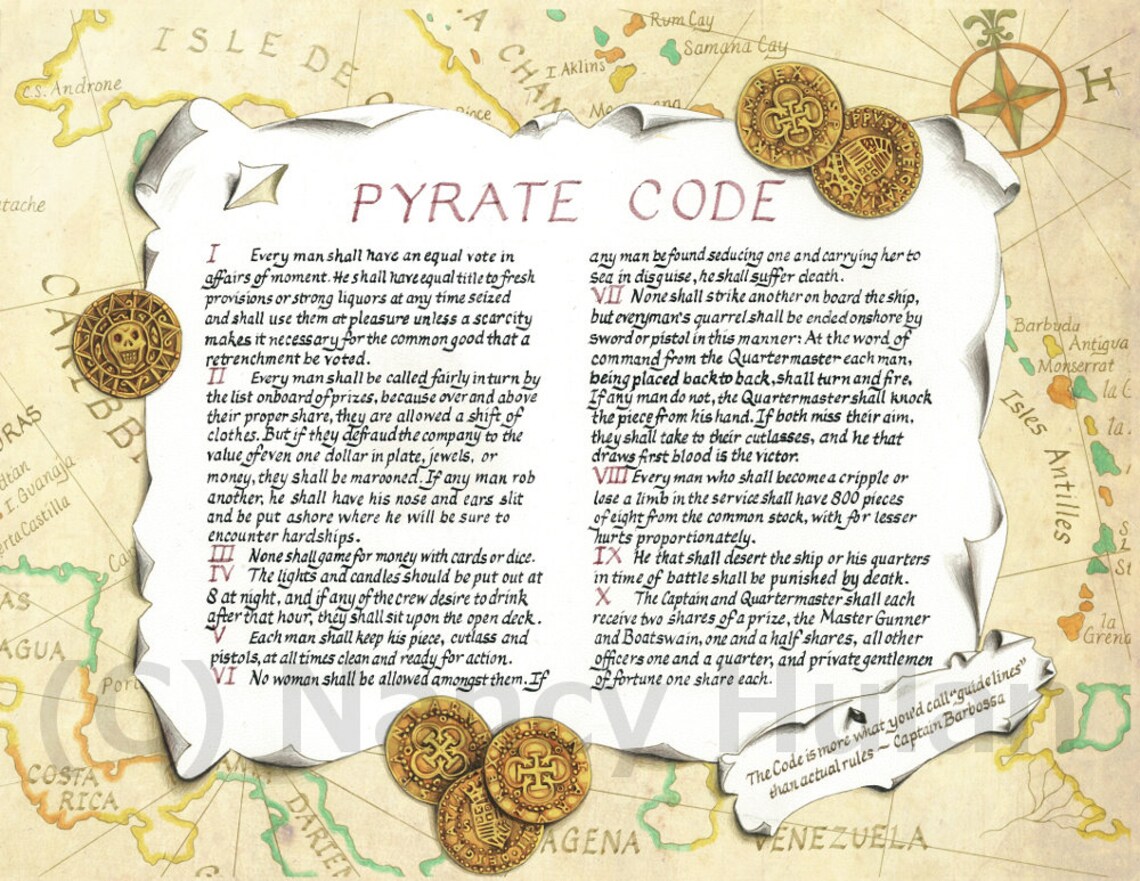 PYRATE CODE
I Every man shall have an equal vote in
affairs of moment. He shall have equal title to fresh
provisions or strong liquors at any time seized
and shall use them at pleasure unless a scarcity
makes it necessary for the common good that a
retrenchment be voted.
II Every man shall be called fairly in turn by
the list on board of prizes, because over and above
their proper share, they are allowed a shift of
clothes. But if they defraud the company to the
value of even one dollar in plate, jewels, or
money, they shall be marooned. If any man rob
another, he shall have his nose and ears slit
and be put ashore where he will be sure to
encounter hardships.
III None shall game for money with cards or dice.
IV The lights and candles should be put out at
8 at night, and if any of the crew desire to drink
after that hour, they shall sit upon the open deck.
V Each man shall keep his piece, cutlass and
pistols, at all times clean and ready for action.
VI No woman shall be allowed amongst them. If
any man be found seducing one and carrying her to
sea in disguise, he shall suffer death.
VII None shall strike another on board the ship,
but everyman's quarrel shall be ended onshore by
sword or pistol in this manner: At the word of
command from the Quartermaster each man,
being placed back to back, shall turn and fire.
If any man do not, the Quartermaster shall knock
the piece from his hand. If both miss their aim,
they shall take to their cutlasses, and he that
draws first blood is the victor.
VIII Every man who shall become a cripple or
lose a limb in the service shall have 800 pieces
of eight from the common stock, with for lesser
hurts proportionately.
IX He that shall desert the ship or his quarters
in time of battle shall be punished by death.
X The Captain and Quartermaster shall each
receive two shares of a prize, the Master Gunner
and Boatswain, one and a half shares, all other
officers one and a quarter, and private gentlemen
of fortune one share each.
The Code is more what you'd call "guidelines"
than actual rules ~ Captain Barbossa
ISLE DE
C.S. Androne
Rum Cay
Samana Cay
I Aklins
H
Barbuda
Antigua
Monserrat
Isles Antilles
I. Guanaja
Castilla
COSTA
RICA
DARIEN
AGENA
VENEZUELA
(C) Nancy Hulan